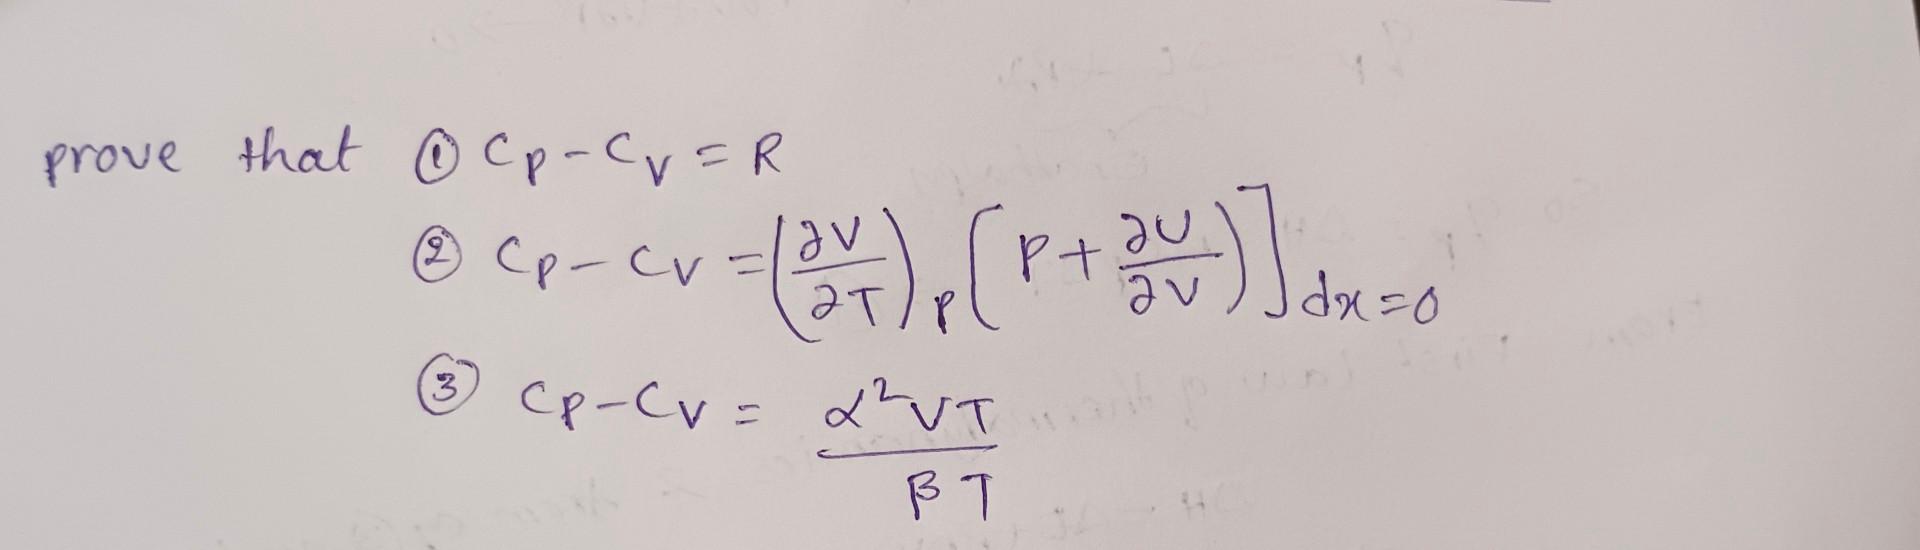 prove that ① Cp - Cv = R
② Cp - Cv = (∂V/∂T)p [P + ∂U/∂V)] dx=0
③ Cp - Cv = α²VT / βT